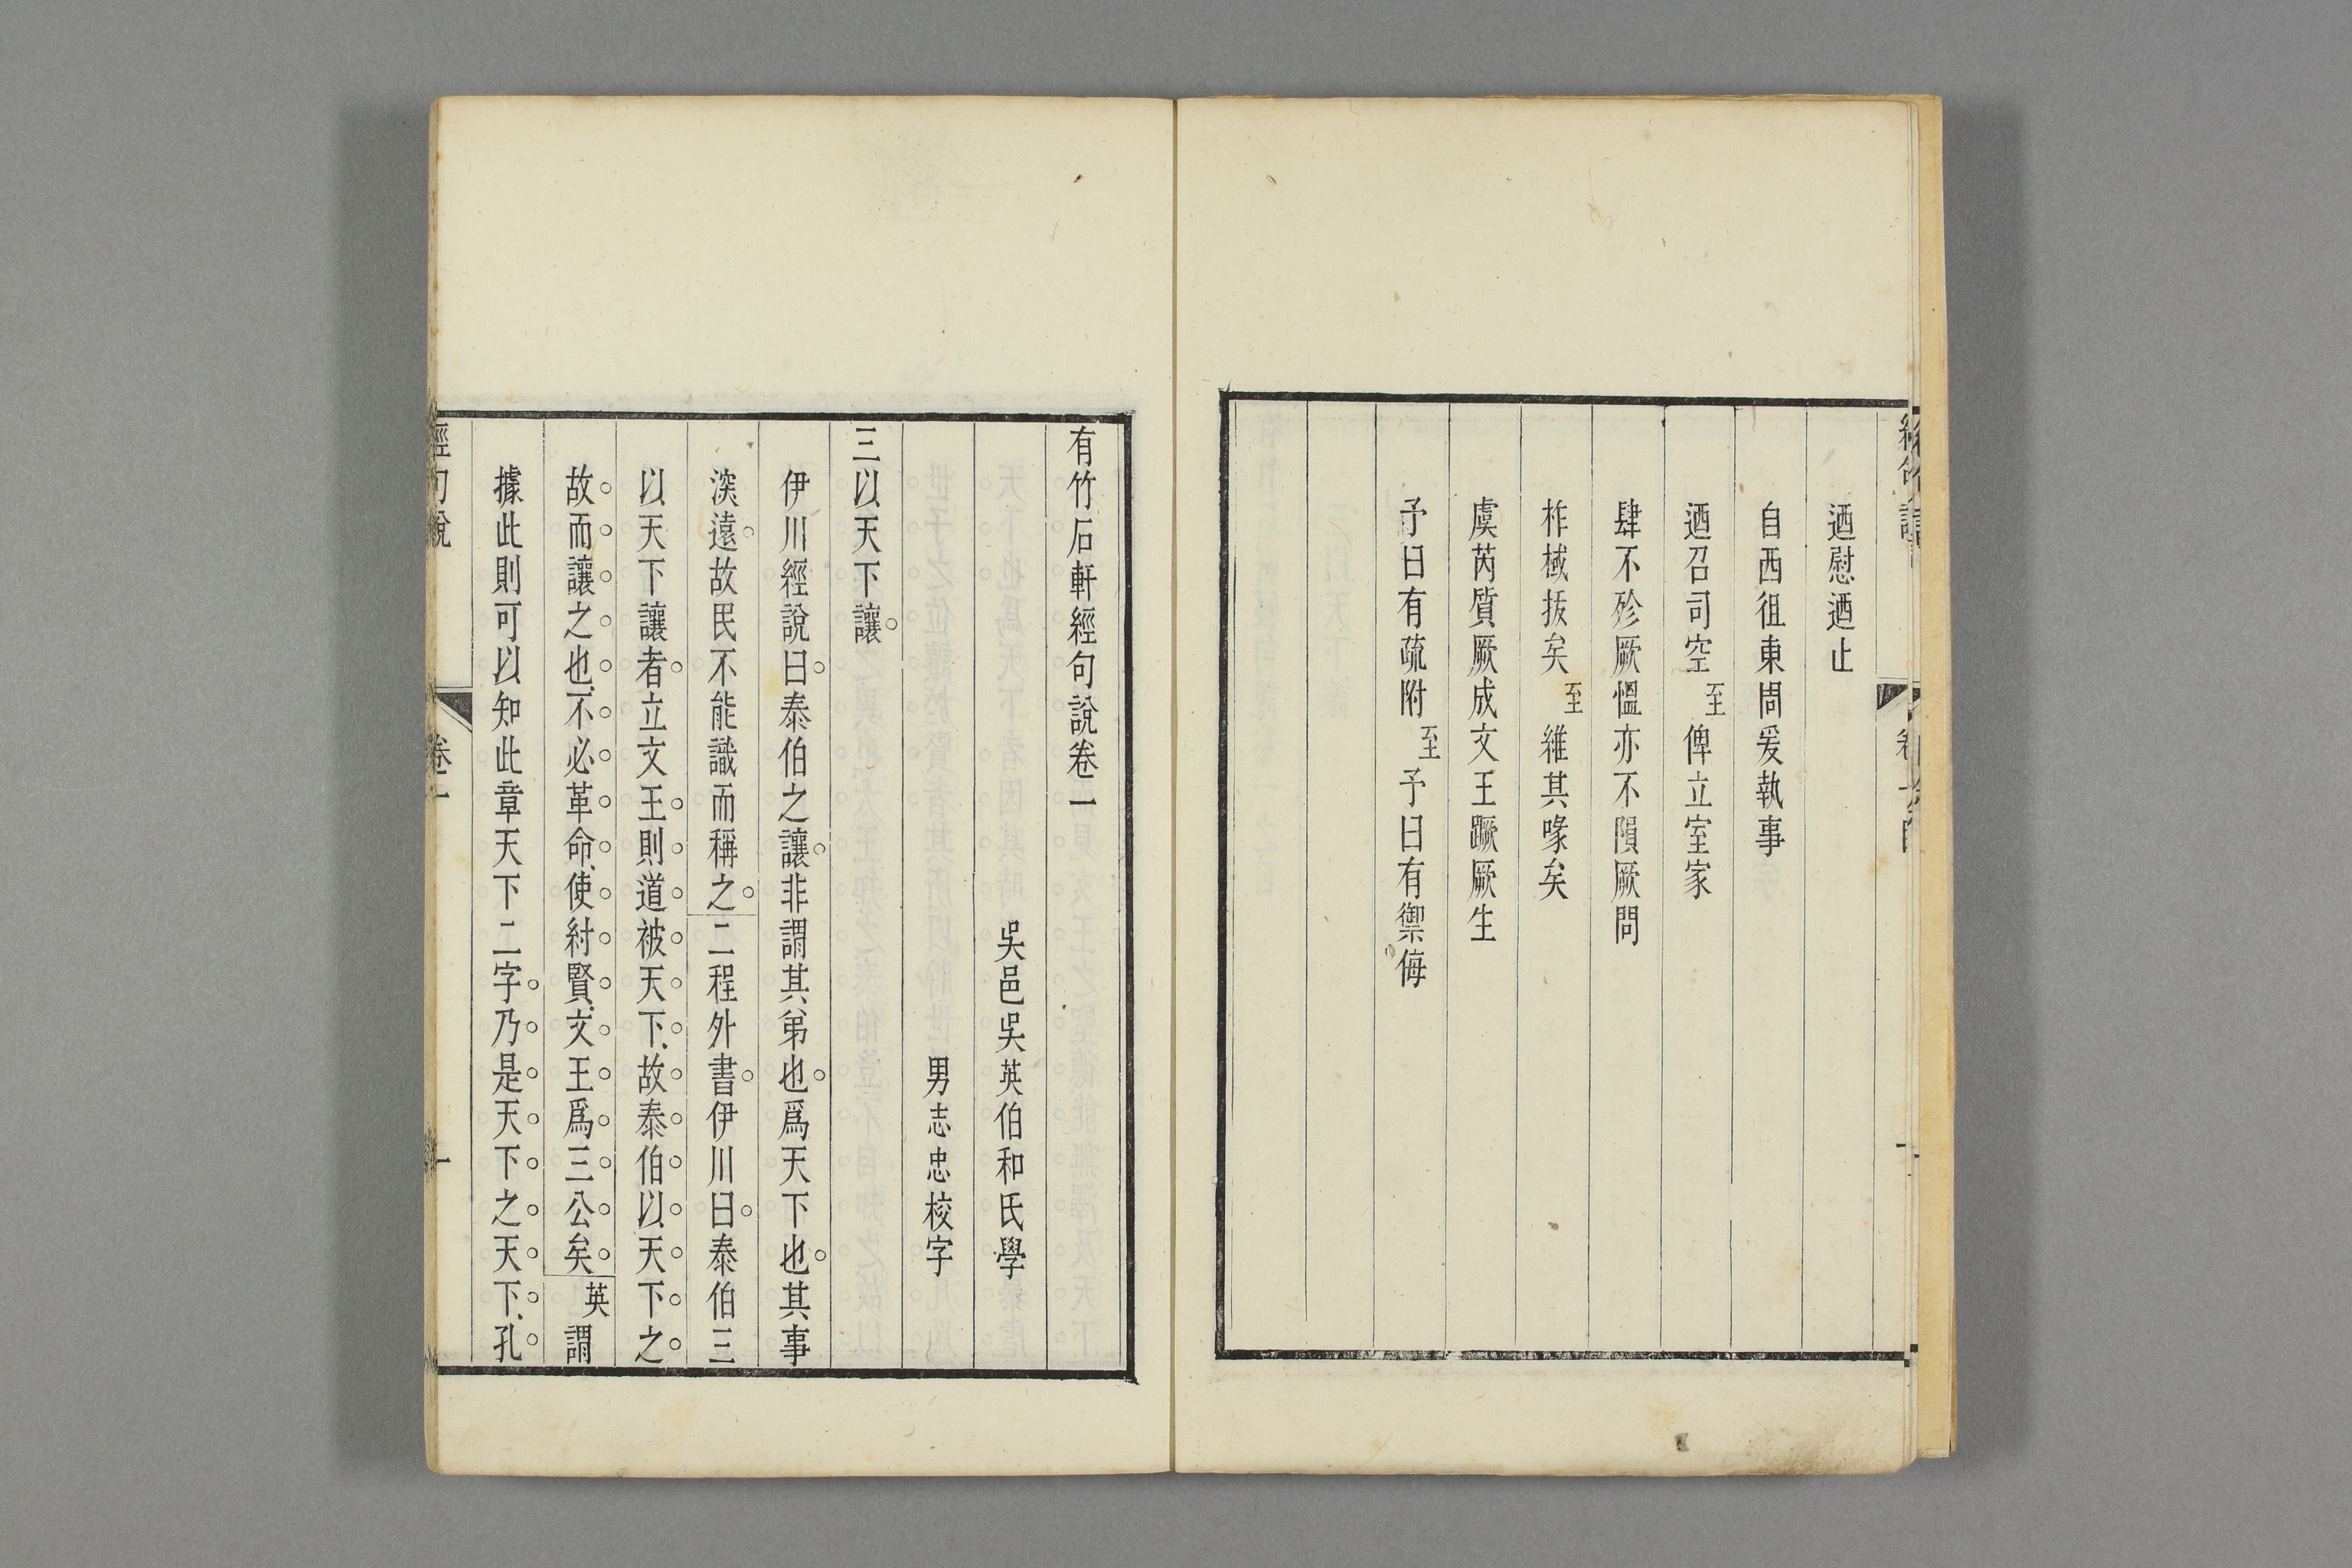 迺慰迺止
自西徂東周爰執事
迺召司空至俾立室家
肆不殄厥慍亦不隕厥問
柞棫拔矣至維其喙矣
虞芮質厥成文王蹶厥生
予曰有疏附至予曰有禦侮
有竹石軒經句說卷一
吳邑吳英伯和氏學
男志忠校字
三以天下讓
伊川經說曰泰伯之讓非謂其弟也爲天下也其事
深遠故民不能識而稱之二程外書伊川曰泰伯三
以天下讓者立文王則道被天下故泰伯以天下之
故而讓之也不必革命使紂賢文王爲三公矣英謂
據此則可以知此章天下二字乃是天下之天下孔
經句說 卷一 一